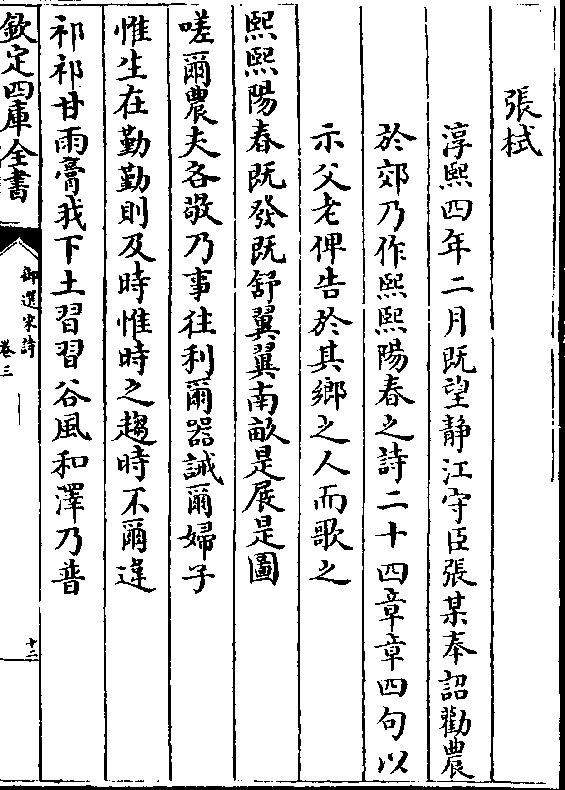 張栻
淳熙四年二月既望靜江守臣張某奉詔勸農
於郊乃作熙熙陽春之詩二十四章章四句以
示父老俾告於其鄉之人而歌之
熙熙陽春既發既舒翼翼南畝是展是圖
嗟爾農夫各敬乃事往利爾器誡爾婦子
惟生在勤勤則及時惟時之趨時不爾違
祁祁甘雨膏我下土習習谷風和澤乃普
欽定四庫全書
御選宋詩
卷三
十二